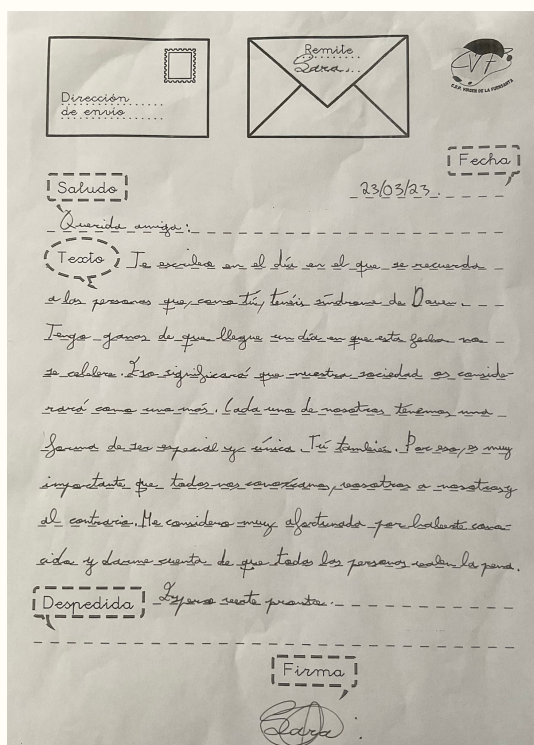 Remite
Sara
Dirección
de envío
C.E.P. VIRGEN DE LA FUENSANTA
Fecha
Saludo
23/03/23.
Querida amiga:
Texto Te escribo en el día en el que se recuerda
a las personas que, como tú, tenéis síndrome de Down.
Tengo ganas de que llegue un día en que esta fecha no
se celebre. Eso significará que nuestra sociedad os conside-
rará como una más. Cada una de nosotras tenemos una
forma de ser especial y única. Tú también. Por eso, es muy
importante que todos nos conozcamos, vosotras a nosotras y
al contrario. Me considero muy afortunada por haberte cono-
cido y darme cuenta de que todas las personas valen la pena.
Despedida Espero verte pronto.
Firma
Sara